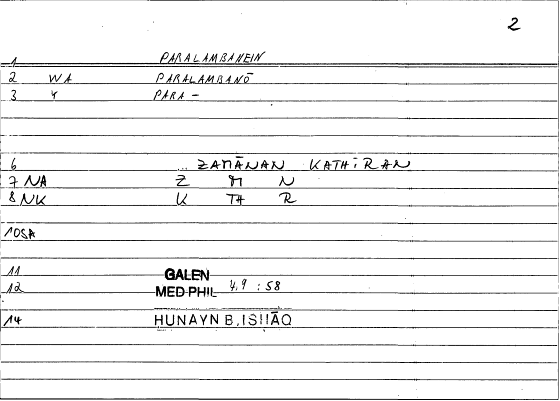 2
1 PARALAMBANEIN
2 WA PARALAMBANŌ
3 Y PARA -
6 ... ZAMĀNAN KATHĪRAN
7 NA Z M N
8 NK K TH R
10SA
11 GALEN
12 MED PHIL 4.9 : 58
14 HUNAYN B. ISḤĀQ